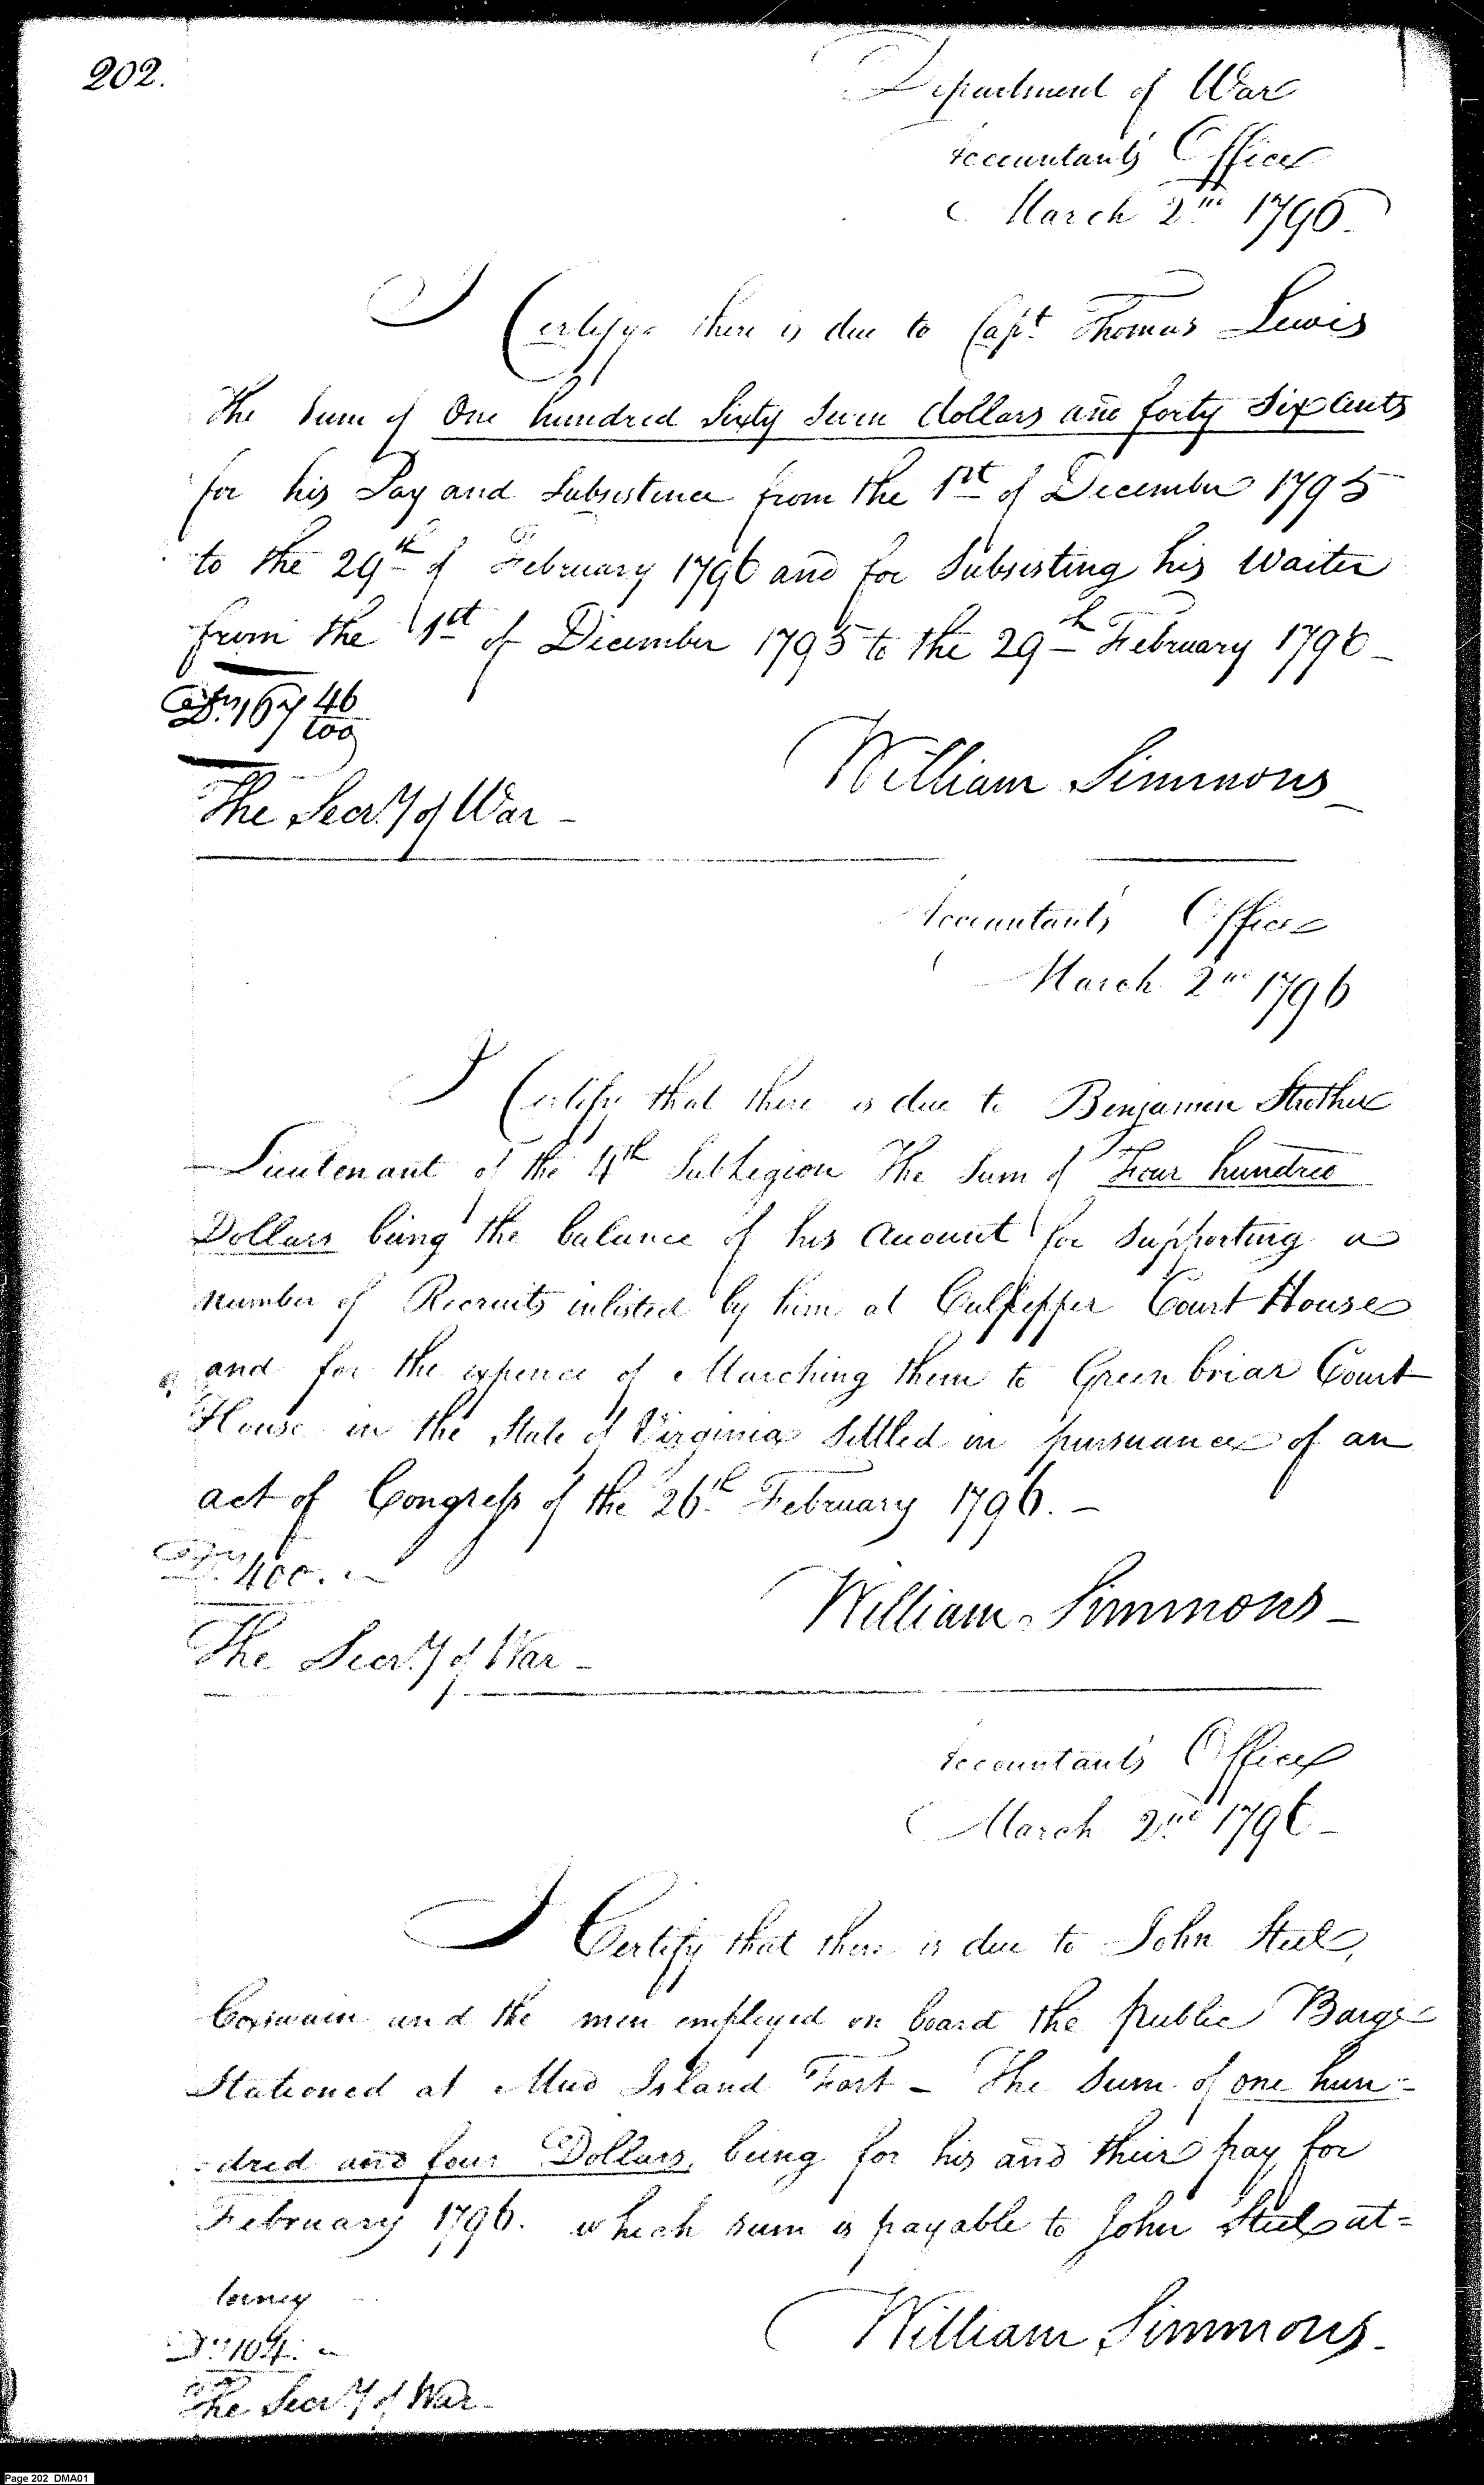 202.
Department of War
Accountants Office
March 2nd 1796
I Certify there is due to Capt Thomas Lewis
The Sum of One hundred Sixty Seven dollars and forty Six Cents
for his Pay and Subsistence from the 1st of December 1795
to the 29th of February 1796 and for Subsisting his Waiter
from the 1st of December 1795 to the 29th February 1796 -
Copy
Drs. 167 46/100
William Simmons -
The Secr.y of War -
Accountants Office
March 2nd 1796
I Certify that there is due to Benjamin Strother
Lieutenant of the 4th SubLegion The Sum of Four hundred
Dollars being the balance of his account for Supporting a
number of Recruits inlisted by him at Culpepper Court House
and for the expence of Marching them to Green briar Court
House in the State of Virginia Settled in pursuance of an
act of Congress of the 26th February 1796. -
Copy
Drs. 400. -
William Simmons -
The Secr.y of War -
Accountants Office
March 2nd 1796 -
I Certify that there is due to John Steel,
Coxswain and the men employed on board the public Barge
Stationed at Mud Island Fort - The Sum of one hun-
-dred and four Dollars, being for his and their pay for
February 1796. which sum is payable to John Steel at=
torney
Drs. 104. -
William Simmons -
The Secr.y of War -
Page 202 DMA01